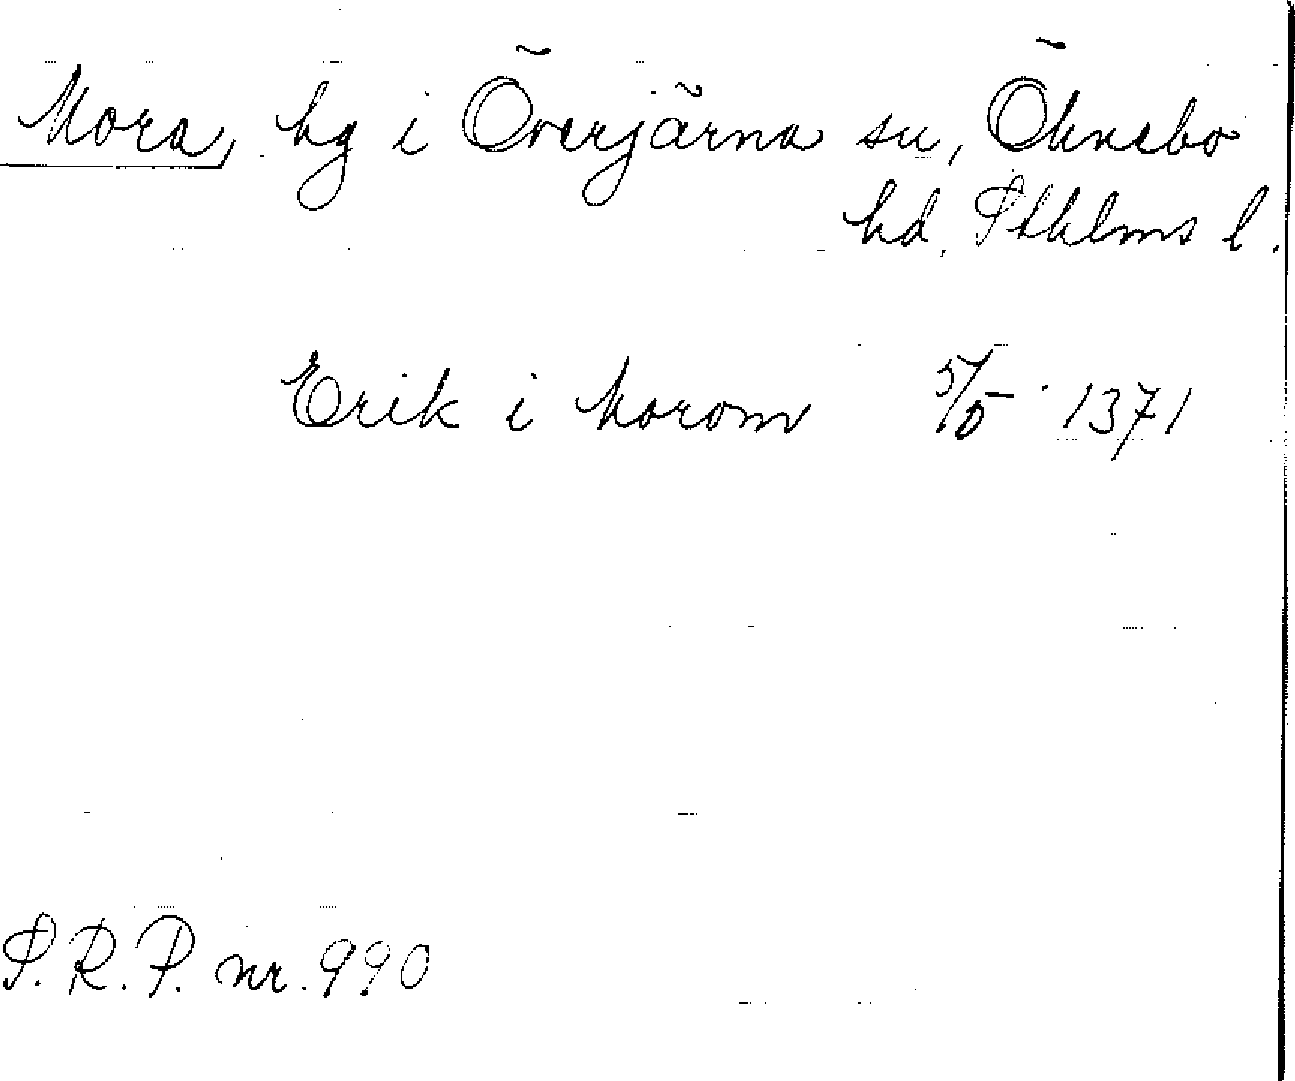 Mora, hg i Överjärna sn, Öknebo
hd, Sthlms l.
Erik i Morom 5/5 1371
S.R.P. nr. 990